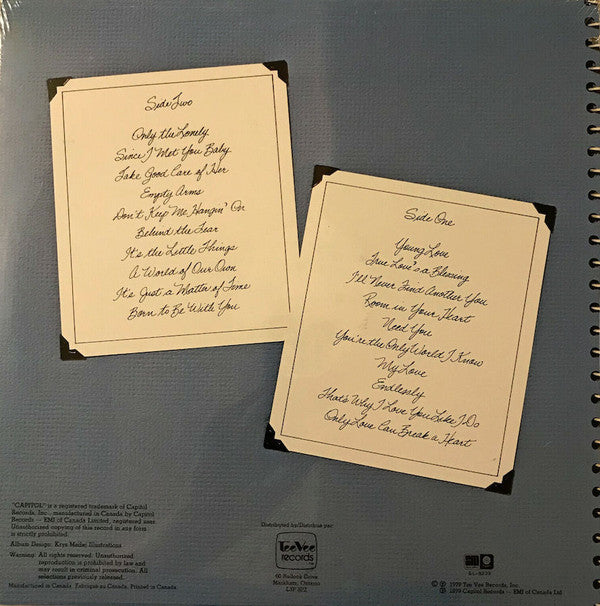 Side Two
Only the Lonely
Since I Met You Baby
Take Good Care of Her
Empty Arms
Don't Keep Me Hangin' On
Behind the Tear
It's the Little Things
A World of Our Own
It's Just a Matter of Time
Born to Be With You
Side One
Young Love
True Love's a Blessing
I'll Never Find Another You
Room in Your Heart
Need You
You're the Only World I Know
My Love
Endlessly
That's Why I Love You Like I Do
Only Love Can Break a Heart
"CAPITOL" is a registered trademark of Capitol
Records, Inc., manufactured in Canada by Capitol
Records — EMI of Canada Limited, registered user.
Unauthorized copying of this record in any form
is strictly prohibited.
Album Design: Krys Meisel Illustrations
Warning: All rights reserved. Unauthorized
reproduction is prohibited by law and
may result in criminal prosecution. All
selections previously released.
Manufactured in Canada. Fabriqué au Canada. Printed in Canada.
Distributed by/Distribué par:
TeeVee
records
Markham, Ontario
℗ 1979 Tee Vee Records, Inc.
© 1979 Capitol Records — EMI of Canada Ltd